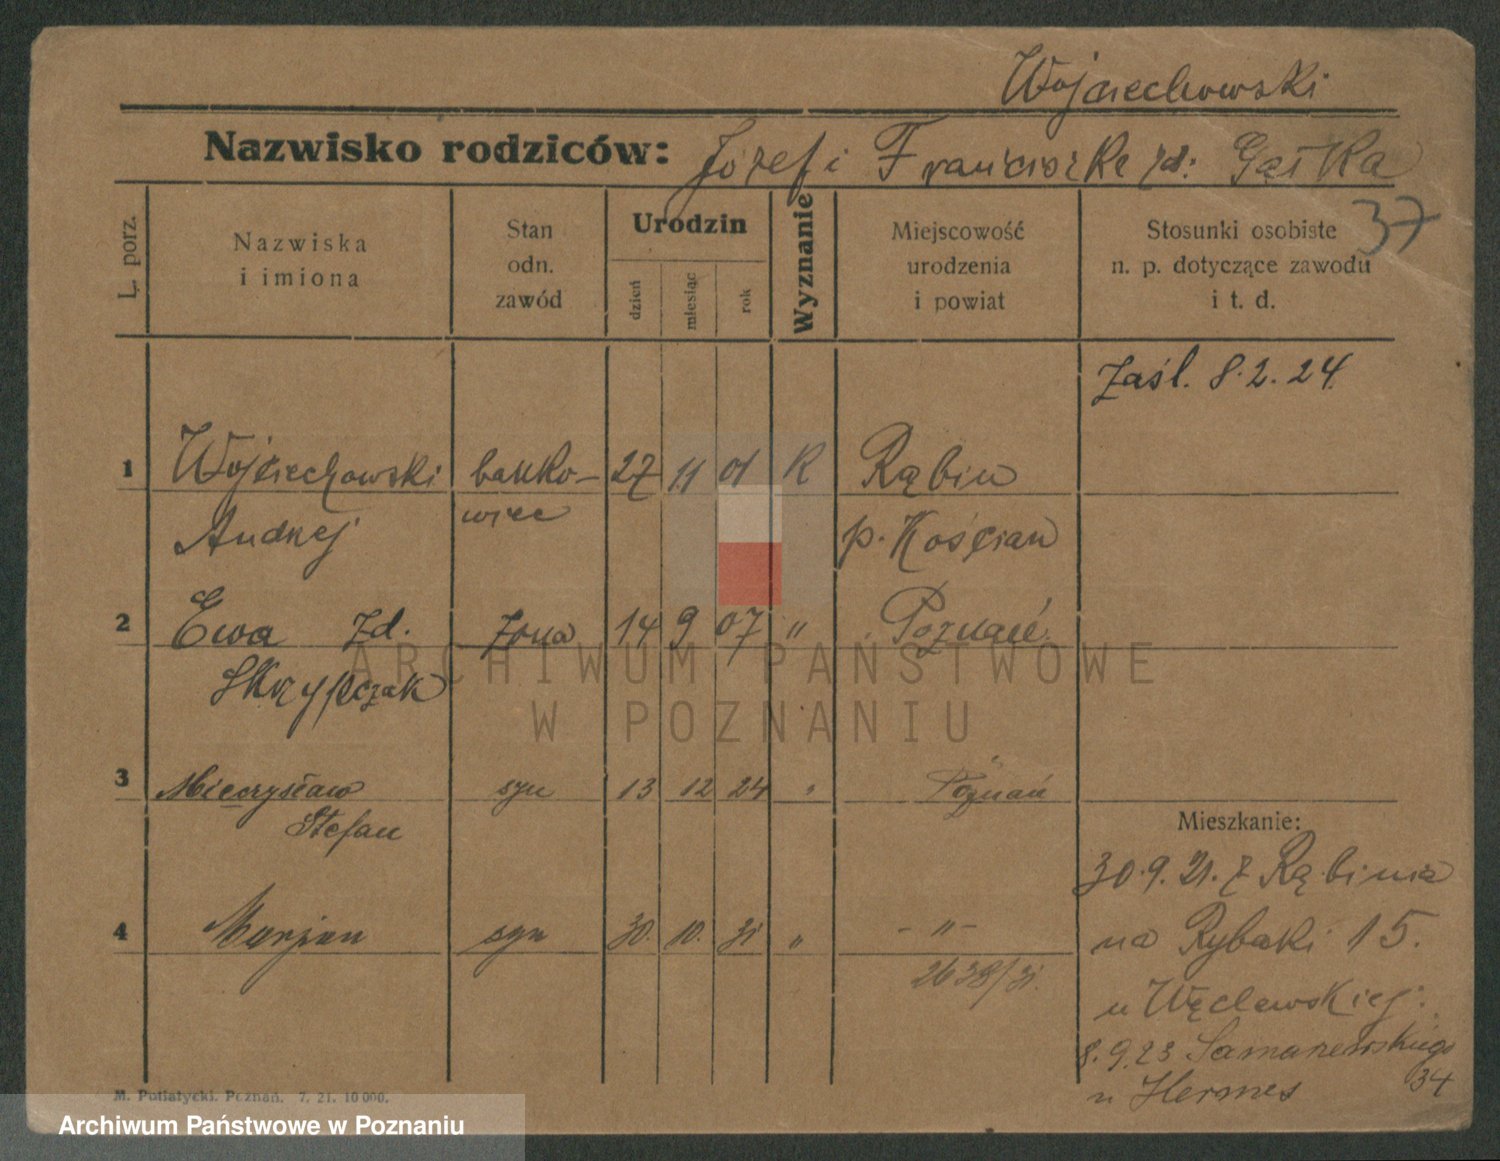 Wojciechowski
Nazwisko rodziców: Józef i Franciszka zd: Gąska
37
L. porz.
Nazwiska
i imiona
Stan
odn.
zawód
Urodzin
dzień
miesiąc
rok
Wyznanie
Miejscowość
urodzenia
i powiat
Stosunki osobiste
n. p. dotyczące zawodu
i t. d.
Zaśl. 8.2.24.
1 Wojciechowski banko- 27 11 01 R Rąbiń
Andrzej wiec p. Kościan
2 Ewa zd. żona 14 9 07 " Poznań
Skrzypczak
3 Mieczysław syn 13 12 24 " Poznań
Stefan
Mieszkanie:
30.9.21. z Rąbinia
4 Marjan syn 30. 10. 31 " - " -
na Rybaki 15.
2638/31.
u Węclewskiej.
8.9.23 Samarzewskiego
34
u Hermes
M. Putiatycki. Poznań. 7. 21. 10 000.
ARCHIWUM PAŃSTWOWE
W POZNANIU
Archiwum Państwowe w Poznaniu